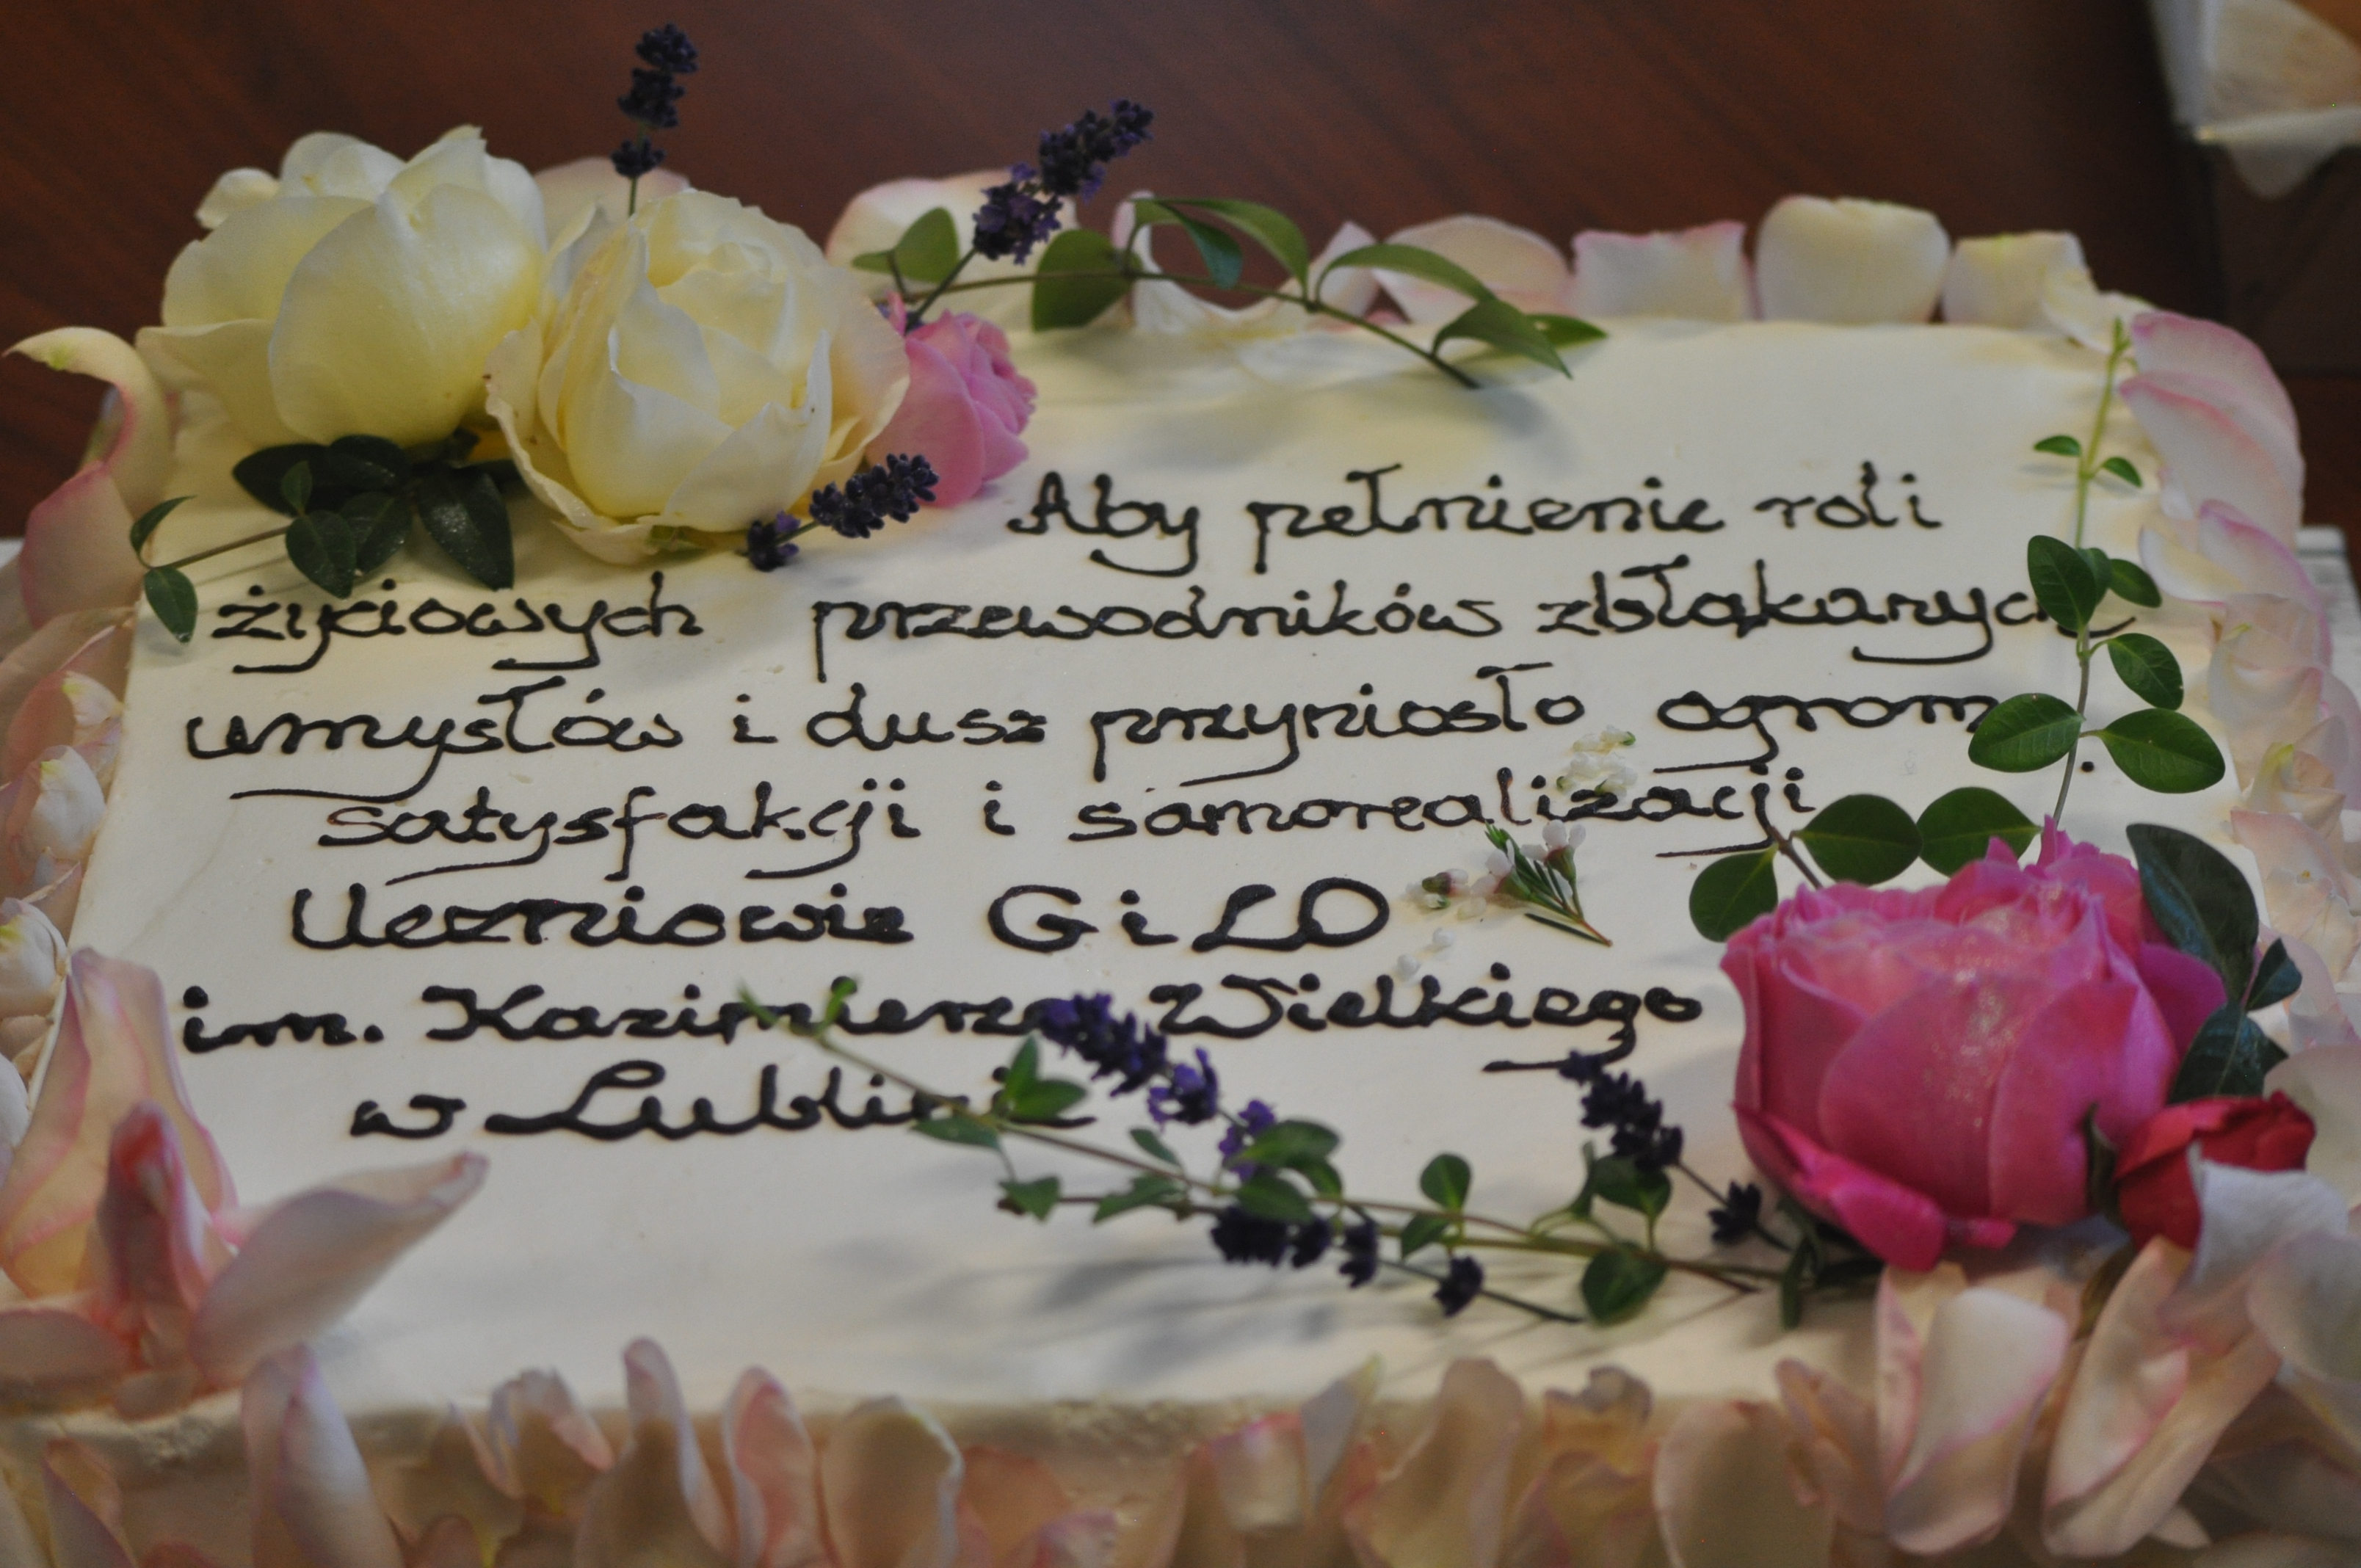 Aby pełnienie roli
życiowych przewodników zbłąkanych
umysłów i dusz przyniosło ogrom
satysfakcji i samorealizacji.
Uczniowie GiLO
im. Kazimierza Wielkiego
w Lublinie